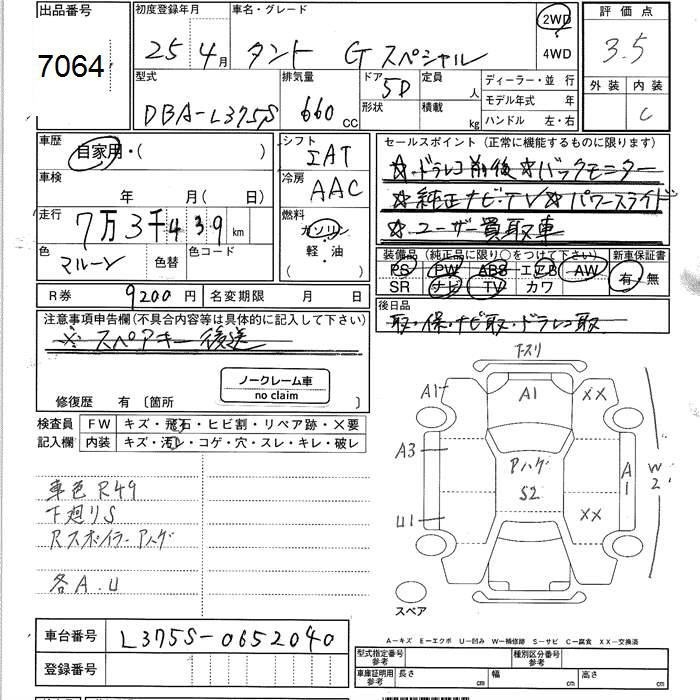 出品番号
7064
初度登録年月
25年4月
車名・グレード
タント G スペシャル
2WD
4WD
評価点
3.5
外装 内装
C
型式
DBA-L375S
排気量
660 CC
ドア 5D
形状
定員 人
積載 kg
ディーラー・並行
モデル年式 年
ハンドル 左・右
車歴
自家用・( )
車検
年 月( 日)
走行
7万3千439 km
色
マルーン
色替
色コード
シフト
IAT
冷房
AAC
燃料
ガソリン
軽・油
セールスポイント(正常に機能するものに限ります)
☆ドラレコ前後☆バックモニター
☆純正ナビ・TV☆パワースライド
☆ユーザー買取車
装備品(純正品に限り○をつけて下さい)
PS PW ABS エアB AW
SR ナビ TV カワ
新車保証書
有・無
R券 9200円
名変期限 月 日
後日品
取・保・ナビ取・ドラレコ取
注意事項申告欄(不具合内容等は具体的に記入して下さい)
※スペアキー後送
ノークレーム車
no claim
修復歴 有 〔箇所 〕
検査員
記入欄
FW キズ・飛石・ヒビ割・リペア跡・×要
内装 キズ・汚レ・コゲ・穴・スレ・キレ・破レ
車色 R49
下廻りS
Rスポイラーアハゲ
各A.U
下スリ
A1
A1
XX
A3
Aハゲ
S2
A1
W2
U1
XX
スペア
A－キズ E－エクボ U－凹み W－補修跡 S－サビ C－腐食 XX－交換済
車台番号
L375S-0652040
登録番号
型式指定番号
参考
種別区分番号
参考
車庫証明用
参考
長さ cm
幅 cm
高さ cm